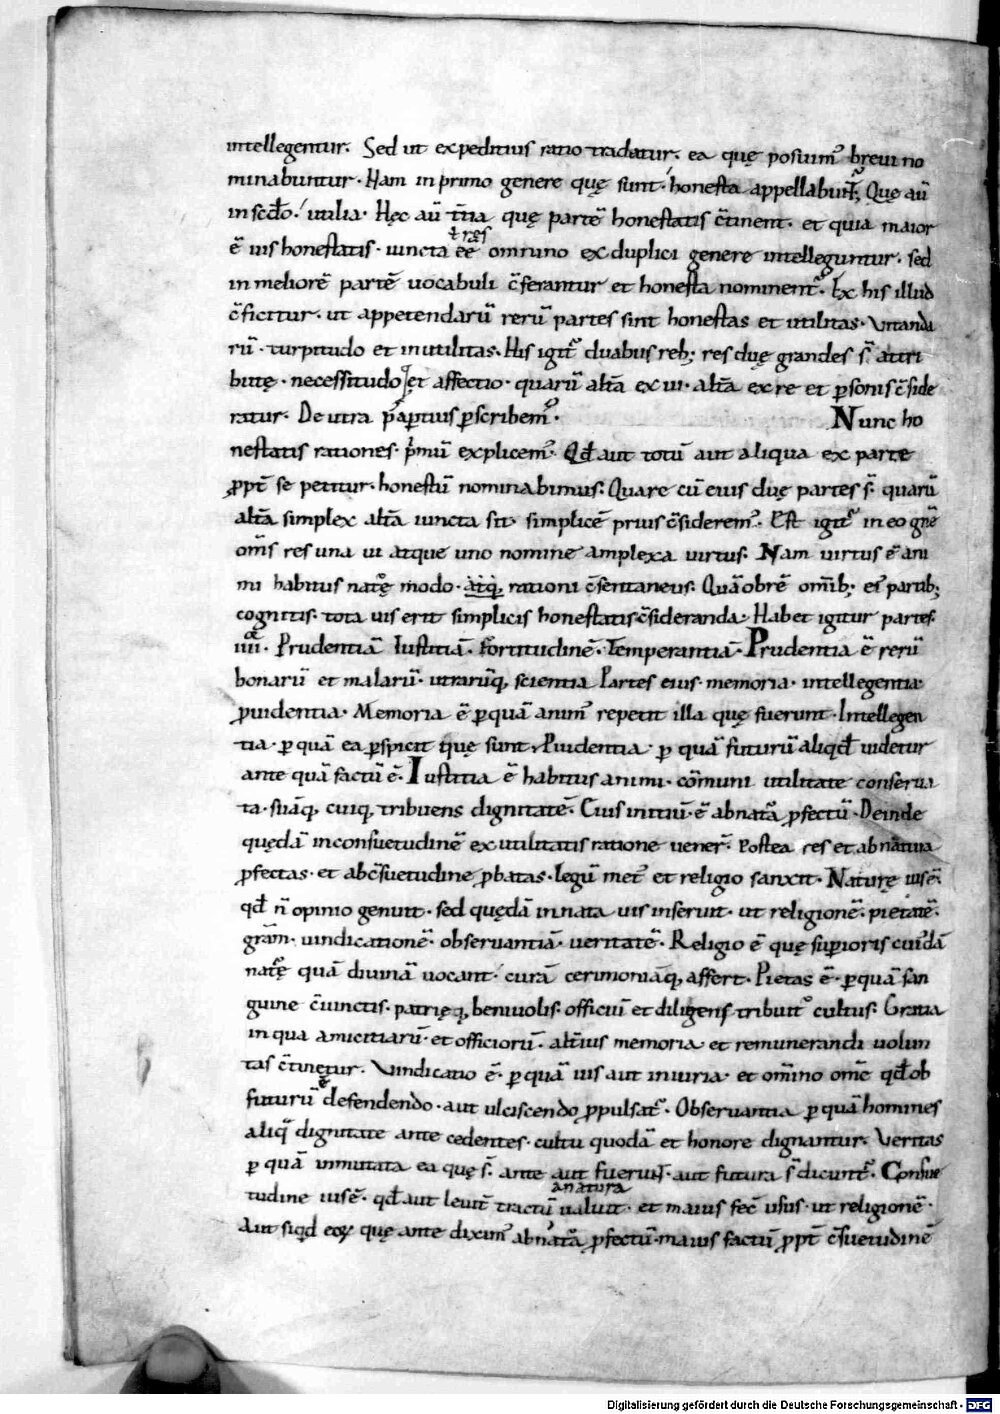 intellegentur. Sed ut expeditius ratio tradatur. ea quę posuim᷒ brevi no
minabuntur. Nam in primo genere quę sunt. honesta appellabunt᷒; Quę aū
in scđo. utilia. Hęc aū t̄tia quę partē honestatis c̄tinent. et quia maior
ē uis honestatis. iuncta eē omnino ex duplici genere intelleguntur. sed
in meliorē partē uocabuli c̄ferantur et honesta nominent᷒. Ex his illud
c̄ficitur. ut appetendarū rerū partes sint honestas et utilitas. Vitanda
rū. turpitudo et inutilitas. His igit᷒ duabus reb; res duę grandes s̄ attri
butę. necessitudo et affectio. quarū alt̄a ex ui. alt̄a ex re et ꝑsonis c̄side
ratur. De utra p̄ aptius ꝑscribem᷒. Nunc ho
nestatis rationes. p̄mū explicem᷒. Qđ aut totū aut aliqua ex parte
ꝓpt̄ se petitur. honestū nominabimus. Quare cū eius duę partes s̄. quarū
alt̄a simplex alt̄a iuncta sit. simplicē prius c̄siderem᷒. Est igit᷒ in eo gn̄e
om̄s res una ui atque uno nomine amplexa virtus. Nam virtus ē ani
mi habitus nat᷒ę modo. atq; rationi c̄sentaneus. Quāobrē om̄ib; ei᷒ partib;
cognitis. tota uis erit simplicis honestatis c̄sideranda. Habet igitur partes.
iiii. Prudentiā Iustitiā. Fortitudinē. Temperantiā. Prudentia ē rerū
bonarū et malarū. utrarūq; scientia Partes eius. memoria. intellegentia
ꝓuidentia. Memoria ē ꝑ quā anim᷒ repetit illa quę fuerunt. Intellegen
tia. ꝑ quā ea ꝑspicit quę sunt. Ꝓuidentia. ꝑ quā futurū aliqđ uidetur
ante quā factū ē. Iustitia ē habitus animi. cōmuni utilitate conserua
ta. suāq; cuiq; tribuens dignitatē. Cuius initiū ē ab nat᷒a ꝓfectū. Deinde
quędā in consuetudinē ex utilitatis ratione uener̄. Postea res et ab natura
ꝓfectas. et ab c̄suetudine ꝓbatas. legū met᷒ et religio sanxit. Naturę ius ē.
qđ n̄ opinio genuit. sed quędā innata uis inseruit. ut religionē. pietatē.
gram̄. uindicationē. obseruantiā. ueritatē. Religio ē quę suꝑioris cui᷒dā
nat᷒ę quā diuinā uocant. curā cerimoniāq; affert. Pietas ē. ꝑ quā san
guine c̄iunctis. patrięq; beniuolis. officiū et diligens tribuit᷒ cultus. Gratia
in qua amicitiarū. et officiorū. alt̄ius memoria et remunerandi uolun
tas c̄tinetur. Vindicatio ē. ꝑ quā uis aut iniuria. et om̄ino om̄e qđ ob
futurū ē defendendo. aut ulciscendo ꝓpulsat᷒. Obseruantia ꝑ quā homines
aliq̄ dignitate ante cedentes. cultu quodā et honore dignantur. Veritas
ꝑ quā inmutata ea quę s̄. ante aut fuerunt. aut futura s̄ dicunt᷒. Consue
tudine ius ē. qđ aut leuit̄ tractū a natura ualuit. et maius fec̄ usus. ut religionē.
Aut siqđ eoꝝ quę ante dixim᷒ ab nat᷒a ꝓfectū. maius factū ꝓpt̄ c̄suetudinē
Digitalisierung gefördert durch die Deutsche Forschungsgemeinschaft - DFG